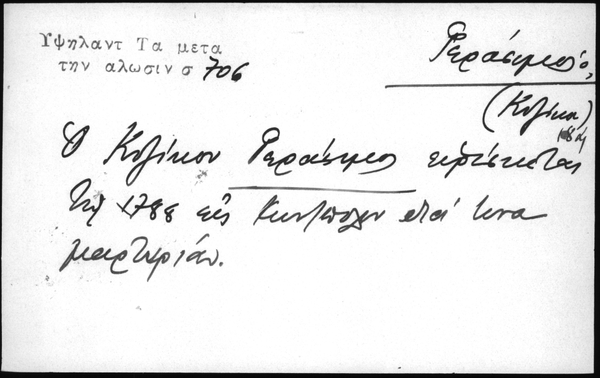 Υψηλαντ Τα μετα
την αλωσιν σ 706
Γεράσιμος,
(Κυζίκου)
Ο Κυζίκου Γεράσιμος ευρίσκεται
τῷ 1788 εἰς Κων/πολιν
μαρτυρίαν.